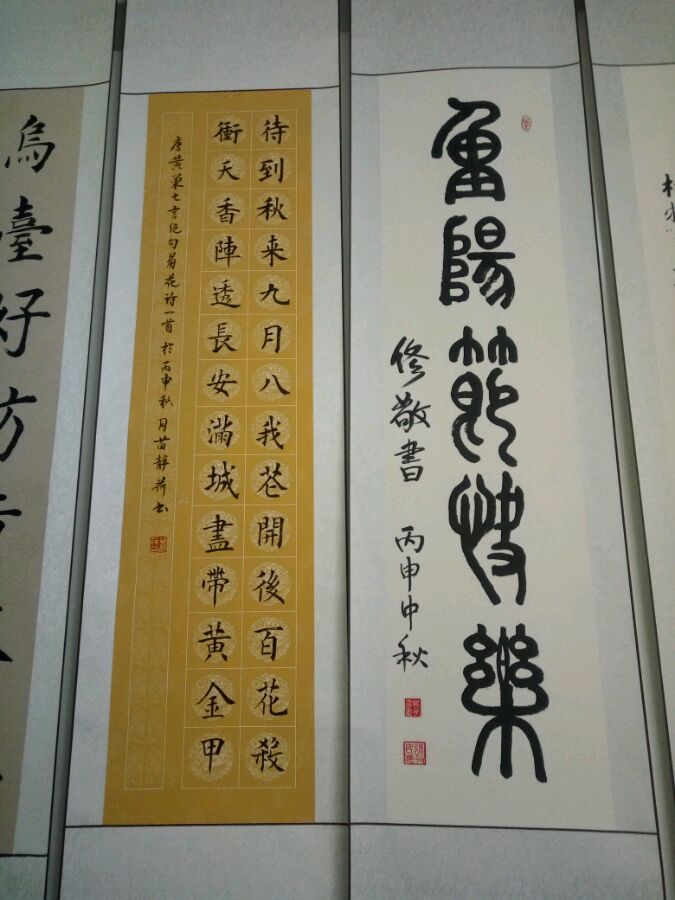 重陽節快樂
修敬書 丙申中秋
待到秋来九月八我花開後百花殺
衝天香陣透長安滿城盡帶黄金甲
唐黄巢七言绝句菊花诗一首於丙申秋月苗静荷书
烏臺好